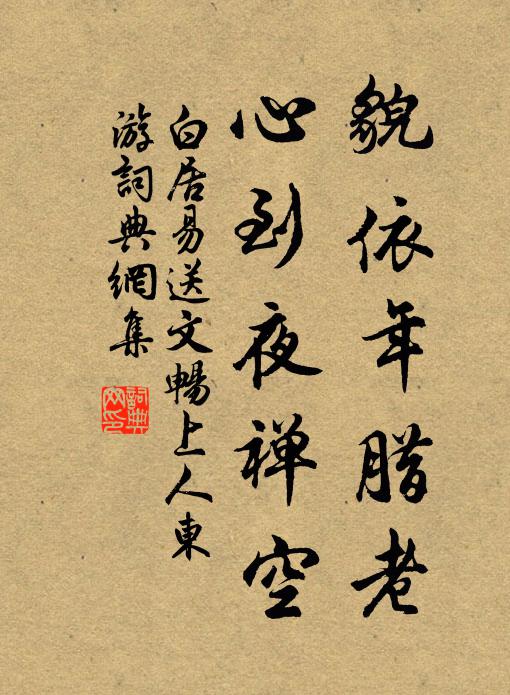 貌依年腊老
心到夜禅空
白居易送文暢上人東
游詞典網集
詞典網印